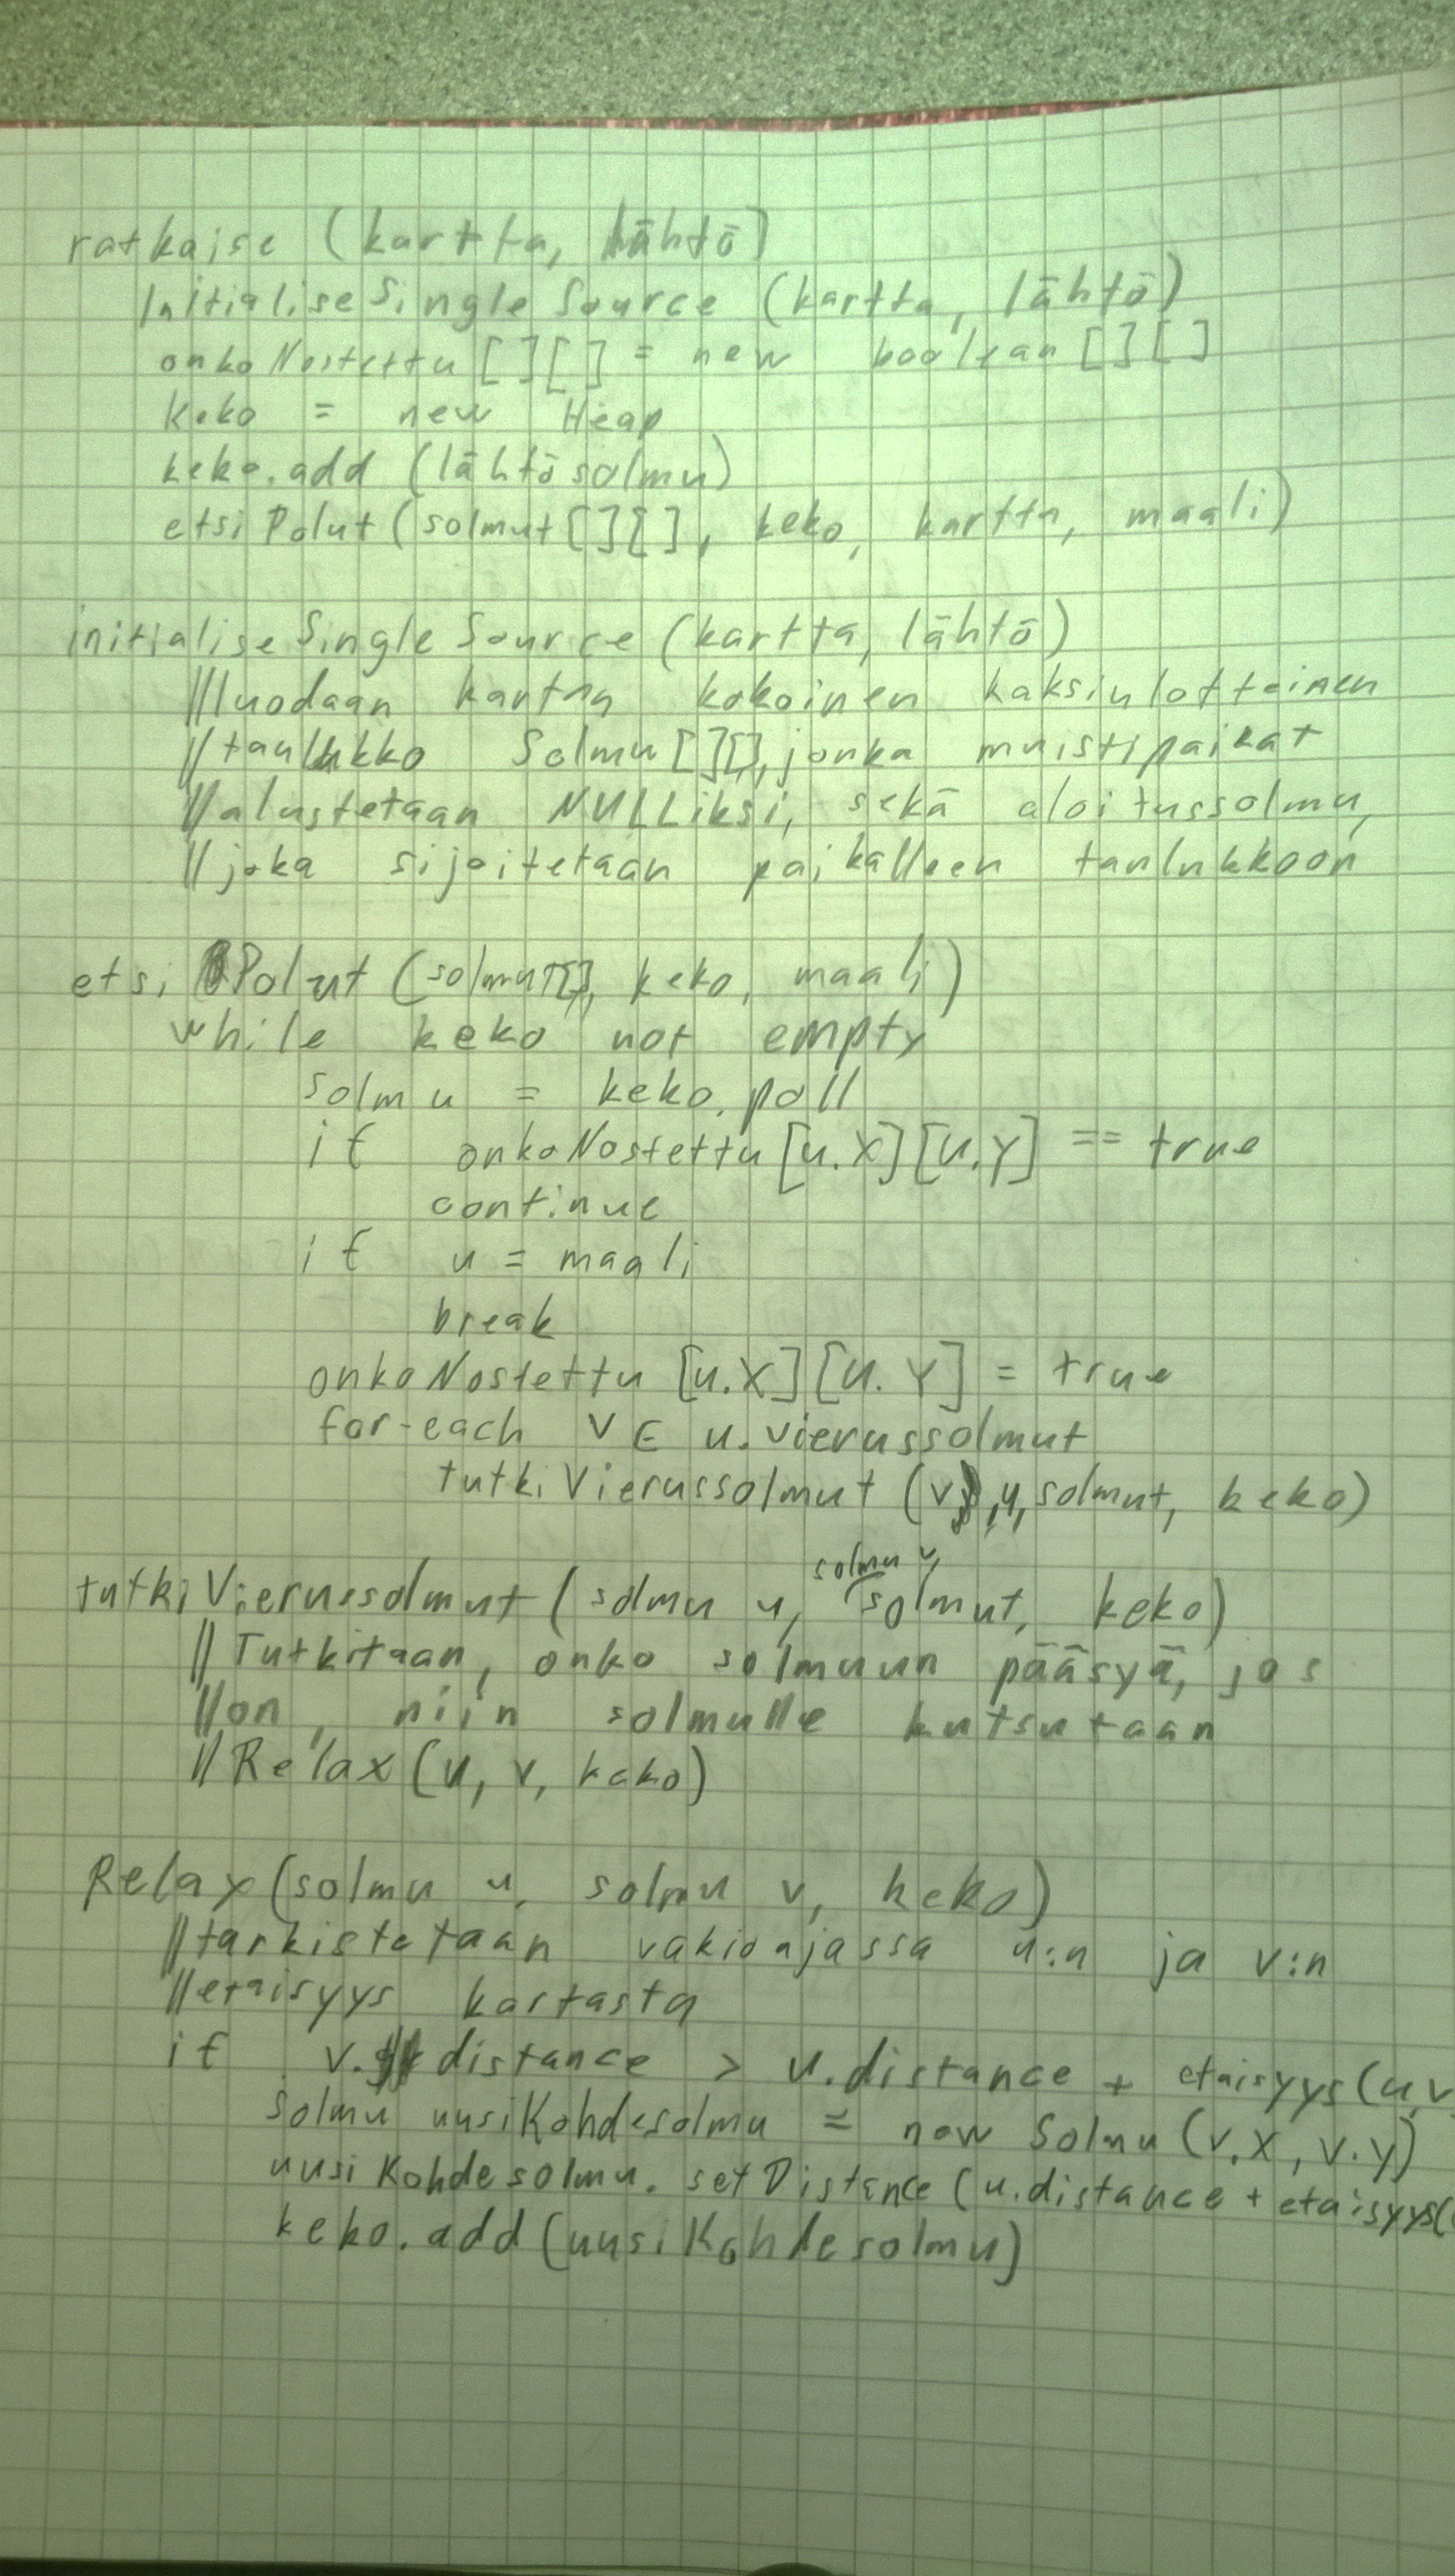 ratkaise (kartta, lähtö)
InitialiseSingleSource (kartta, lähtö)
onkoNostettu[][] = new boolean[][]
Keko = new Heap
keko.add (lähtösolmu)
etsiPolut(solmut[][], keko, kartta, maali)
initialiseSingleSource (kartta, lähtö)
//luodaan kartan kokoinen kaksiulotteinen
//taulukko Solmu[][], jonka muistipaikat
//alustetaan NULLiksi, sekä aloitussolmu,
//joka sijoitetaan paikalleen taulukkoon
etsiPolut (solmut[][], keko, maali)
while keko not empty
solmu = keko.poll
if onkoNostettu[u.X][u.Y] == true
continue
if u = maali
break
onkoNostettu [u.X][u.Y] = true
for-each v ∈ u.vierussolmut
tutkiVierussolmut (v, u, solmut, keko)
tutkiVierussolmut (solmu u, solmu v, solmut, keko)
//Tutkitaan, onko solmuun pääsyä, jos
//on, niin solmulle kutsutaan
//Relax(u, v, keko)
Relax(solmu u, solmu v, keko)
//tarkistetaan vakioajassa u:n ja v:n
//etäisyys kartasta
if v.distance > u.distance + etaisyys(u,v
Solmu uusiKohdesolmu = new Solmu (v.X, v.y)
uusiKohdesolmu.setDistance (u.distance + etaisyys(
keko.add (uusiKohdesolmu)